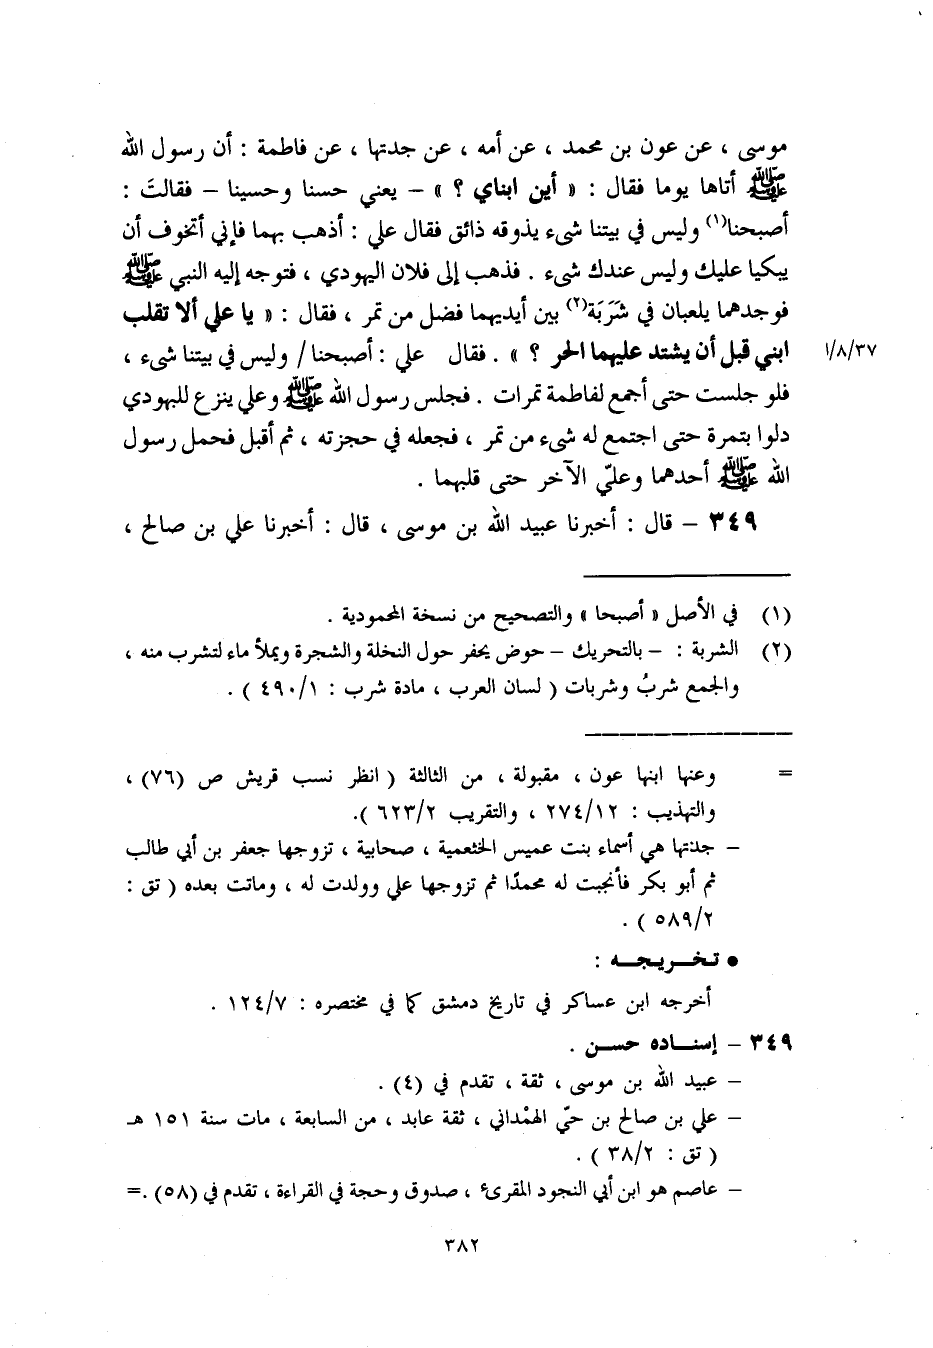 موسى ، عن عون بن محمد ، عن أمه ، عن جدتها ، عن فاطمة : أن رسول الله
ﷺ أتاها يوما فقال : « أين ابناي ؟ » – يعني حسنا وحسينا – فقالتَ :
أصبحنا(١) وليس في بيتنا شىء يذوقه ذائق فقال علي : أذهب بهما فإني أتخوف أن
يبكيا عليك وليس عندك شىء . فذهب إلى فلان اليهودي ، فتوجه إليه النبي ﷺ
فوجدهما يلعبان في شَرَبَة(٢) بين أيديهما فضل من تمر ، فقال : « يا علي ألا تقلب
ابني قبل أن يشتد عليهما الحر ؟ » . فقال علي : أصبحنا / وليس في بيتنا شىء ،
١/٨/٣٧
فلو جلست حتى أجمع لفاطمة تمرات . فجلس رسول الله ﷺ وعلي ينزع لليهودي
دلوا بتمرة حتى اجتمع له شىء من تمر ، فجعله في حجزته ، ثم أقبل فحمل رسول
الله ﷺ أحدهما وعليّ الآخر حتى قلبهما .
٣٤٩ – قال : أخبرنا عبيد الله بن موسى ، قال : أخبرنا علي بن صالح ،
(١) في الأصل « أصبحا » والتصحيح من نسخة المحمودية .
(٢) الشربة : – بالتحريك – حوض يحفر حول النخلة والشجرة ويملأ ماء لتشرب منه ،
والجمع شربُ وشربات ( لسان العرب ، مادة شرب : ٤٩٠/١ ) .
= وعنها ابنها عون ، مقبولة ، من الثالثة ( انظر نسب قريش ص (٧٦) ،
والتهذيب : ٢٧٤/١٢ ، والتقريب ٦٢٣/٢ ).
– جدتها هي أسماء بنت عميس الخثعمية ، صحابية ، تزوجها جعفر بن أبي طالب
ثم أبو بكر فأنجبت له محمدًا ثم تزوجها علي وولدت له ، وماتت بعده ( تق :
٥٨٩/٢ ) .
● تـخـريـجـه :
أخرجه ابن عساكر في تاريخ دمشق كما في مختصره : ١٢٤/٧ .
٣٤٩ – إسنـــاده حســن .
– عبيد الله بن موسى ، ثقة ، تقدم في (٤) .
– علي بن صالح بن حيّ الهمْداني ، ثقة عابد ، من السابعة ، مات سنة ١٥١ هـ
( تق : ٣٨/٢ ) .
– عاصم هو ابن أبي النجود المقرىء ، صدوق وحجة في القراءة ، تقدم في (٥٨) .=
٣٨٢